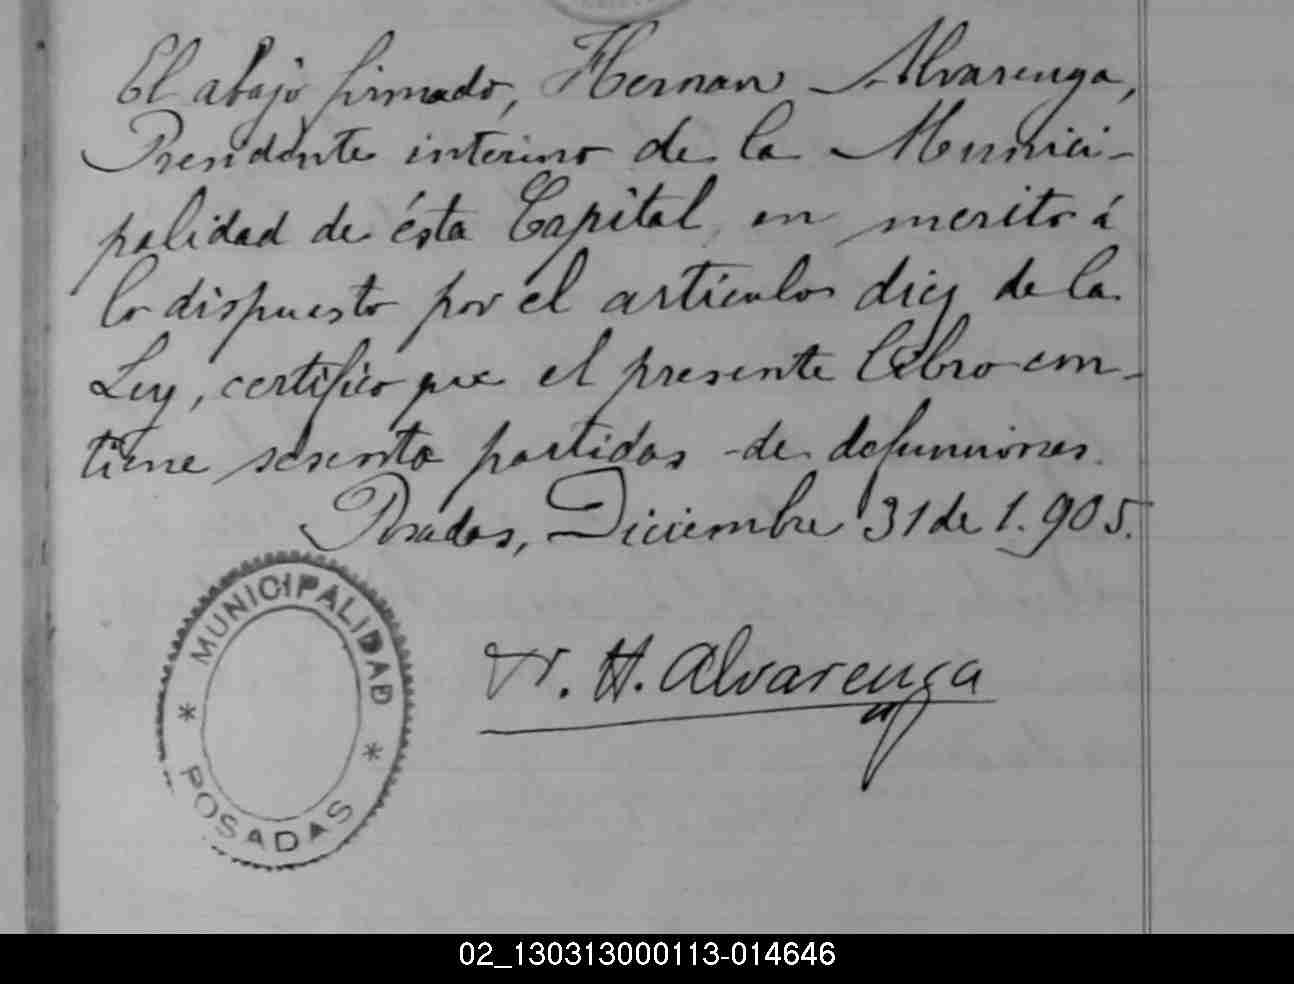 El abajo firmado, Hernan Alvarenga,
Presidente interino de la Munici-
palidad de ésta Capital, en merito á
lo dispuesto por el artículo diez de la
Ley, certifico que el presente libro con-
tiene sesenta partidas de defunciones.
Posadas, Diciembre 31 de 1.905.
H. Alvarenga
MUNICIPALIDAD
* *
POSADAS
02_130313000113-014646